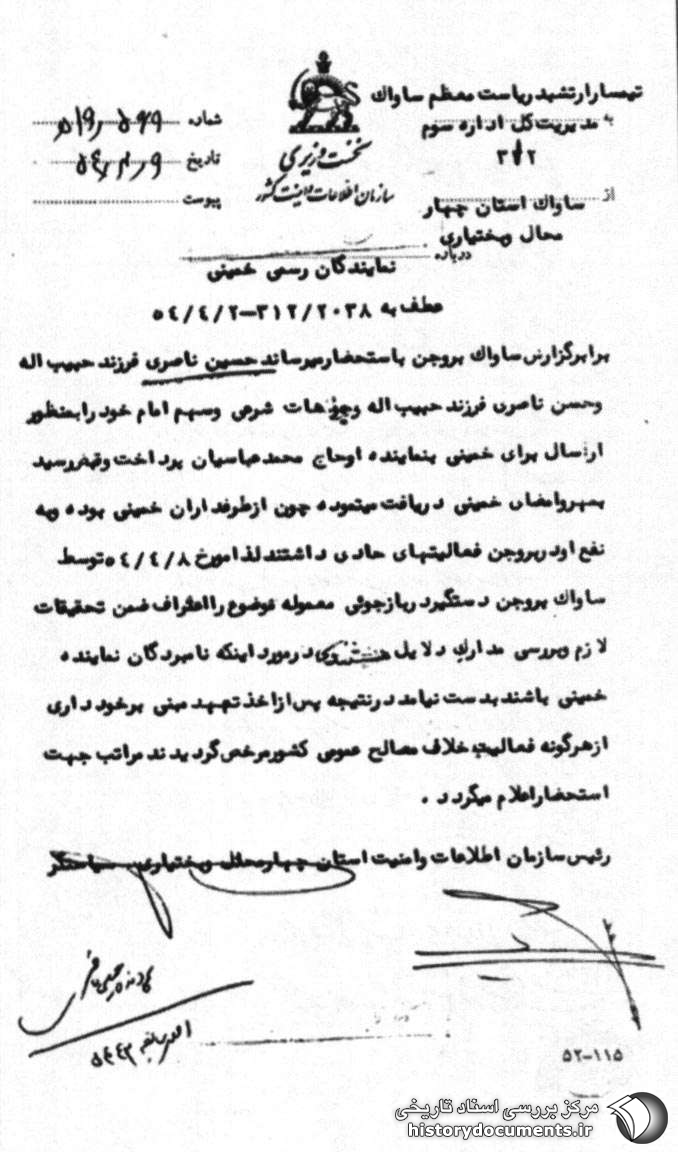 تیمسار ارتشبد ریاست معظم ساواک
به مدیریت کل اداره سوم
۳۱۲
از ساواک استان چهار
محال وبختیاری
نخست وزیری
سازمان اطلاعات و امنیت کشور
شماره
تاریخ
پیوست
درباره نمایندگان رسمی خمینی
عطف به ۳۱۲/۲۰۳۸-۵۴/۴/۲
برابر گزارش ساواک بروجن باستحضار میرساند حسین ناصری فرزند حبیب اله
وحسن ناصری فرزند حبیب اله وجوهات شرعی وسهم امام خود را بمنظور
ارسال برای خمینی بنماینده او حاج محمد عباسیان پرداخت وقبض رسید
بمهر وامضای خمینی دریافت مینموده چون از طرفداران خمینی بوده وبه
نفع او در بروجن فعالیتهای حادی داشتند لذا مورخ ۵۴/۴/۸ توسط
ساواک بروجن دستگیر در بازجوئی معموله موضوع را اعتراف ضمن تحقیقات
لازم وبررسی مدارک دلایل در مورد اینکه نامبردگان نماینده
خمینی باشند بدست نیامد در نتیجه پس از اخذ تعهد مبنی برخود داری
از هرگونه فعالیت خلاف مصالح عمومی کشور مرخص گردیدند مراتب جهت
استحضار اعلام میگردد .
رئیس سازمان اطلاعات وامنیت استان چهارمحال وبختیاری
۵۲-۱۱۵
مرکز بررسی اسناد تاریخی
historydocuments.ir